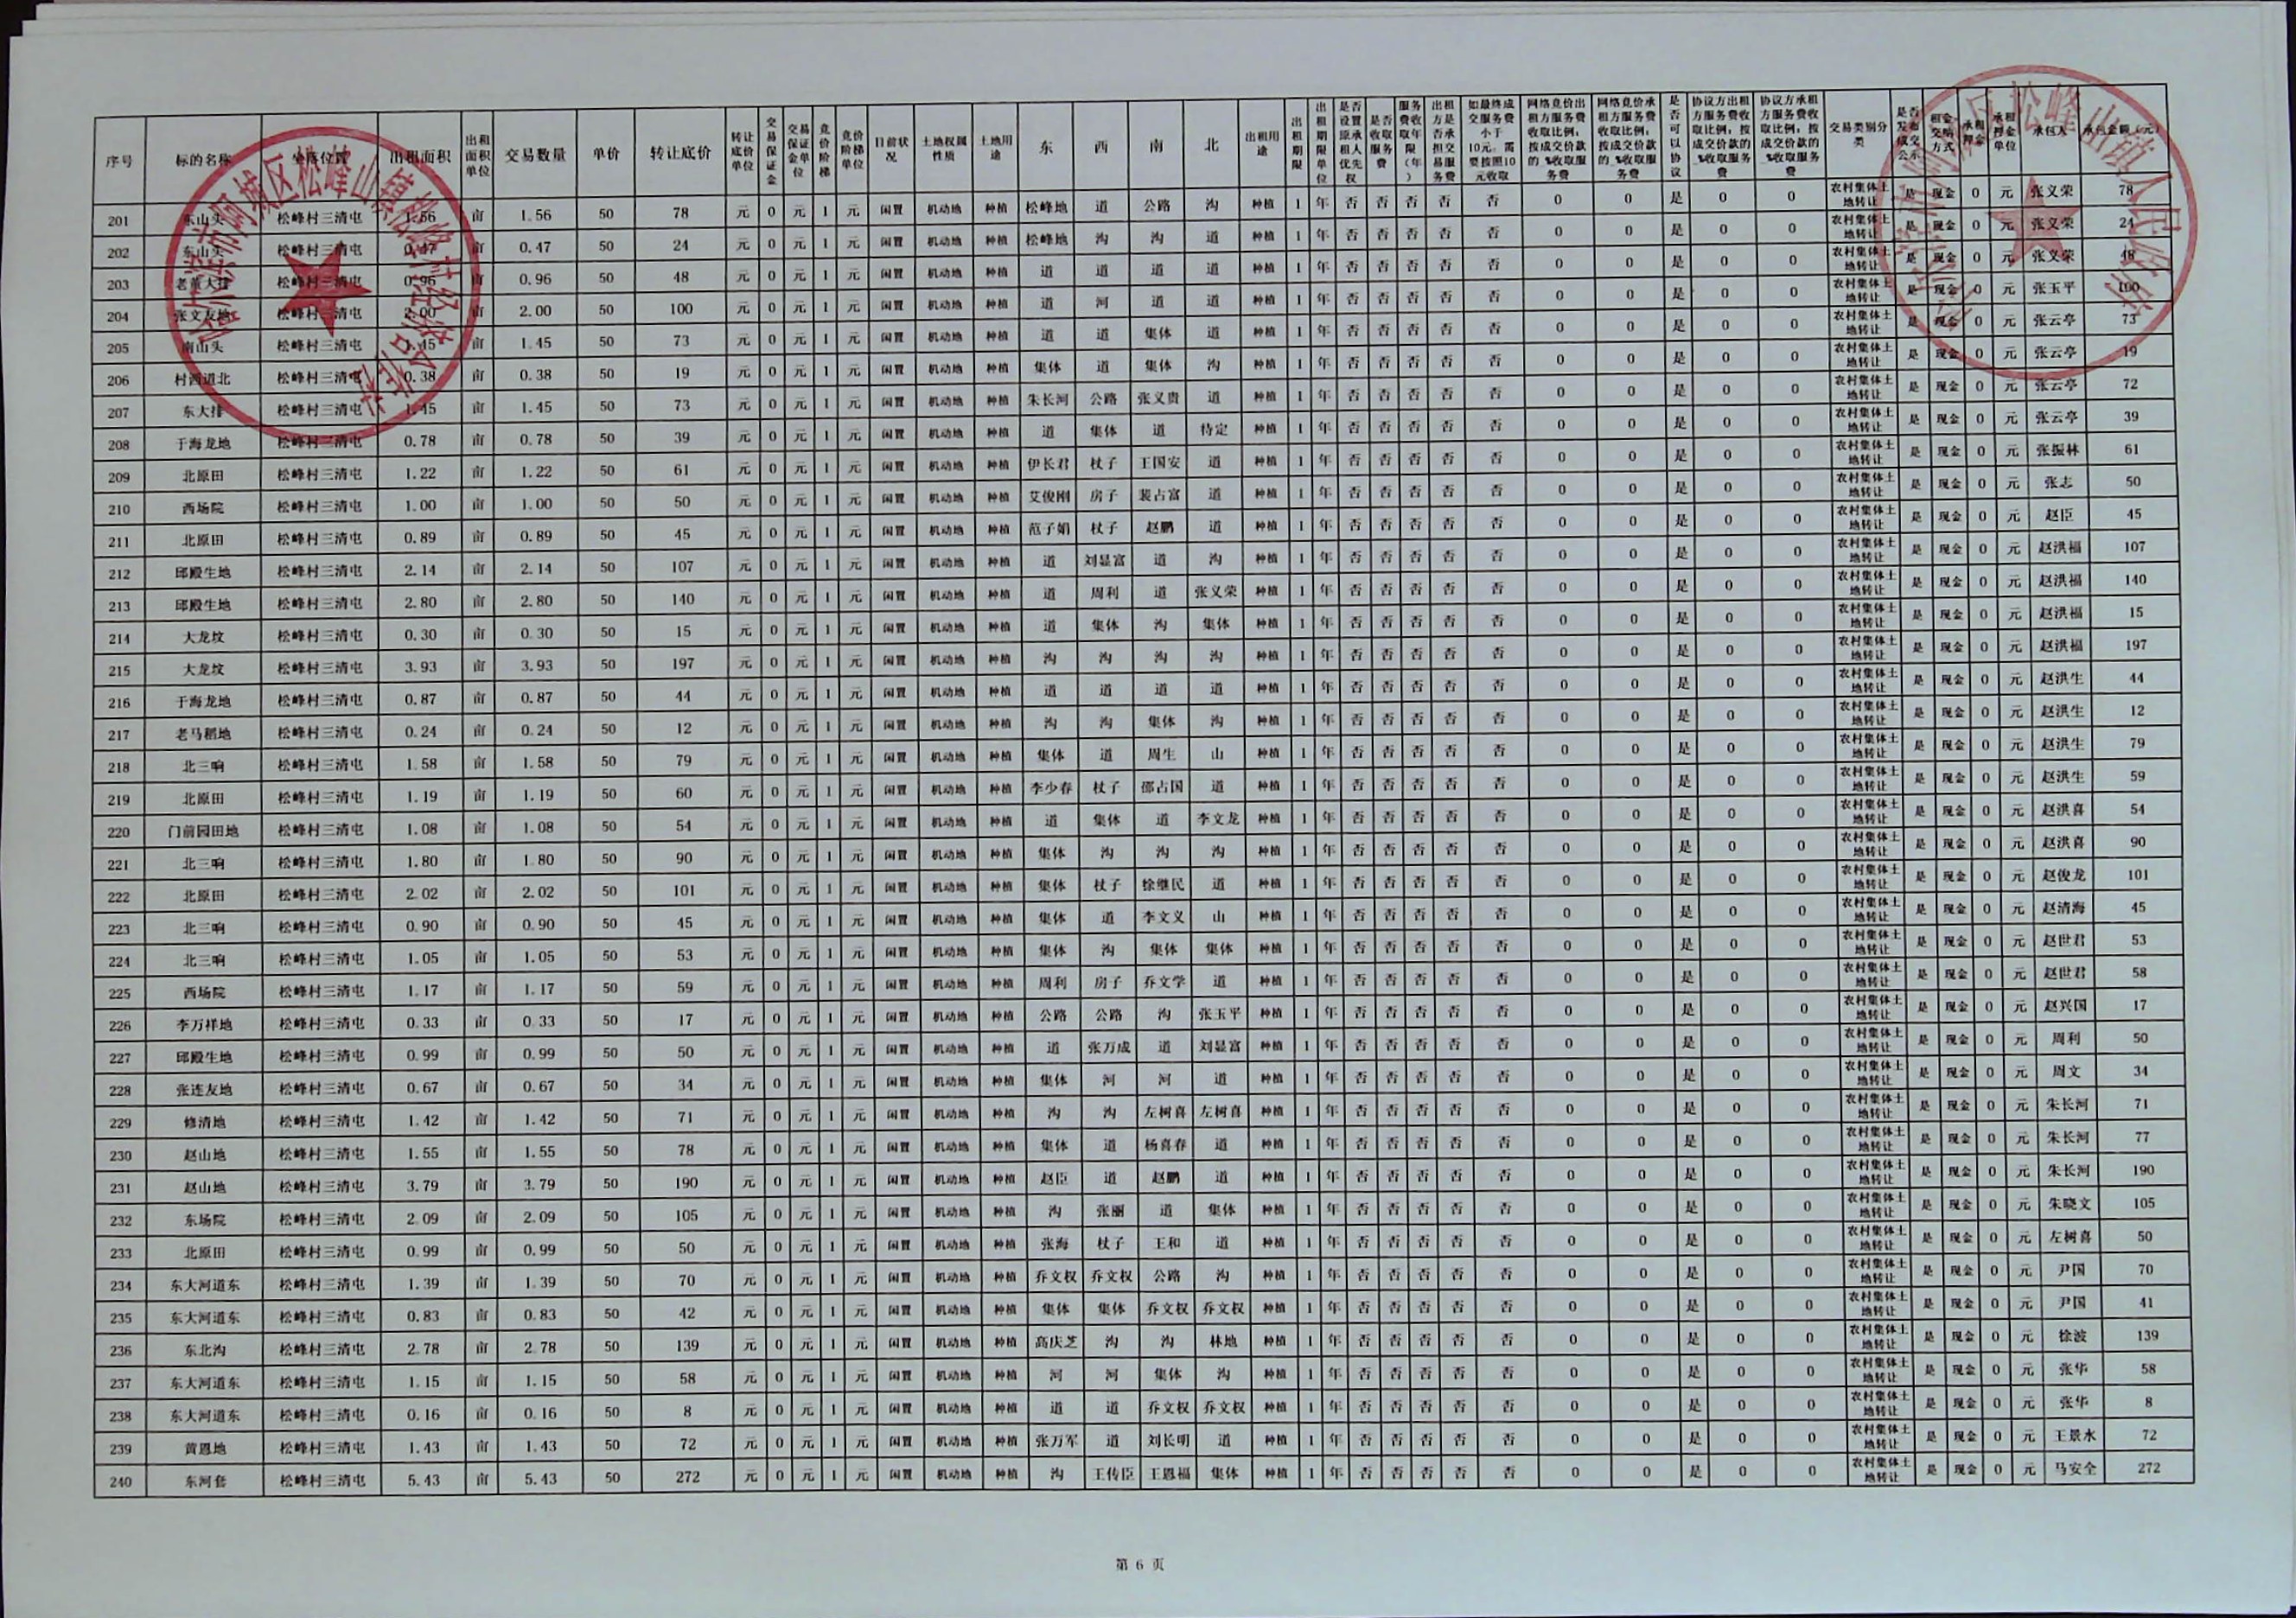 序号 标的名称 坐落位置 出租面积 出租面积单位 交易数量 单价 转让底价 转让底价单位 交易保证金 交易保证金单位 竞价阶梯 竞价阶梯单位 目前状况 土地权属性质 土地用途 东 西 南 北 出租用途 出租期限 出租期限单位 是否设置原承租人优先权 是否收取服务费 服务费收取年限（年） 出租方是否承担交易服务费 如最终成交服务费小于10元，需要按照10元收取 网络竞价出租方服务费收取比例：按成交价款的_%收取服务费 网络竞价承租方服务费收取比例：按成交价款的_%收取服务费 是否可以协议 协议方出租方服务费收取比例：按成交价款的_%收取服务费 协议方承租方服务费收取比例：按成交价款的_%收取服务费 交易类别分类 是否发布成交公示 租金交纳方式 承租押金 承租押金单位 承包人 承包金额（元）
201 东山头 松峰村三清屯 1.56 亩 1.56 50 78 元 0 元 1 元 闲置 机动地 种植 松峰地 道 公路 沟 种植 1 年 否 否 否 否 否 0 0 是 0 0 农村集体土地转让 是 现金 0 元 张义荣 78
202 东山头 松峰村三清屯 0.47 亩 0.47 50 24 元 0 元 1 元 闲置 机动地 种植 松峰地 沟 沟 道 种植 1 年 否 否 否 否 否 0 0 是 0 0 农村集体土地转让 是 现金 0 元 张义荣 24
203 老董大排 松峰村三清屯 0.96 亩 0.96 50 48 元 0 元 1 元 闲置 机动地 种植 道 道 道 道 种植 1 年 否 否 否 否 否 0 0 是 0 0 农村集体土地转让 是 现金 0 元 张义荣 48
204 张文友地 松峰村三清屯 2.00 亩 2.00 50 100 元 0 元 1 元 闲置 机动地 种植 道 河 道 道 种植 1 年 否 否 否 否 否 0 0 是 0 0 农村集体土地转让 是 现金 0 元 张玉平 100
205 南山头 松峰村三清屯 1.45 亩 1.45 50 73 元 0 元 1 元 闲置 机动地 种植 道 道 集体 道 种植 1 年 否 否 否 否 否 0 0 是 0 0 农村集体土地转让 是 现金 0 元 张云亭 73
206 村西道北 松峰村三清屯 0.38 亩 0.38 50 19 元 0 元 1 元 闲置 机动地 种植 集体 道 集体 沟 种植 1 年 否 否 否 否 否 0 0 是 0 0 农村集体土地转让 是 现金 0 元 张云亭 19
207 东大排 松峰村三清屯 1.45 亩 1.45 50 73 元 0 元 1 元 闲置 机动地 种植 朱长河 公路 张义贵 道 种植 1 年 否 否 否 否 否 0 0 是 0 0 农村集体土地转让 是 现金 0 元 张云亭 72
208 于海龙地 松峰村三清屯 0.78 亩 0.78 50 39 元 0 元 1 元 闲置 机动地 种植 道 集体 道 待定 种植 1 年 否 否 否 否 否 0 0 是 0 0 农村集体土地转让 是 现金 0 元 张云亭 39
209 北原田 松峰村三清屯 1.22 亩 1.22 50 61 元 0 元 1 元 闲置 机动地 种植 伊长君 杖子 王国安 道 种植 1 年 否 否 否 否 否 0 0 是 0 0 农村集体土地转让 是 现金 0 元 张振林 61
210 西场院 松峰村三清屯 1.00 亩 1.00 50 50 元 0 元 1 元 闲置 机动地 种植 艾俊刚 房子 裴占富 道 种植 1 年 否 否 否 否 否 0 0 是 0 0 农村集体土地转让 是 现金 0 元 张志 50
211 北原田 松峰村三清屯 0.89 亩 0.89 50 45 元 0 元 1 元 闲置 机动地 种植 范子娟 杖子 赵鹏 道 种植 1 年 否 否 否 否 否 0 0 是 0 0 农村集体土地转让 是 现金 0 元 赵臣 45
212 邱殿生地 松峰村三清屯 2.14 亩 2.14 50 107 元 0 元 1 元 闲置 机动地 种植 道 刘显富 道 沟 种植 1 年 否 否 否 否 否 0 0 是 0 0 农村集体土地转让 是 现金 0 元 赵洪福 107
213 邱殿生地 松峰村三清屯 2.80 亩 2.80 50 140 元 0 元 1 元 闲置 机动地 种植 道 周利 道 张义荣 种植 1 年 否 否 否 否 否 0 0 是 0 0 农村集体土地转让 是 现金 0 元 赵洪福 140
214 大龙坟 松峰村三清屯 0.30 亩 0.30 50 15 元 0 元 1 元 闲置 机动地 种植 道 集体 沟 集体 种植 1 年 否 否 否 否 否 0 0 是 0 0 农村集体土地转让 是 现金 0 元 赵洪福 15
215 大龙坟 松峰村三清屯 3.93 亩 3.93 50 197 元 0 元 1 元 闲置 机动地 种植 沟 沟 沟 沟 种植 1 年 否 否 否 否 否 0 0 是 0 0 农村集体土地转让 是 现金 0 元 赵洪福 197
216 于海龙地 松峰村三清屯 0.87 亩 0.87 50 44 元 0 元 1 元 闲置 机动地 种植 道 道 道 道 种植 1 年 否 否 否 否 否 0 0 是 0 0 农村集体土地转让 是 现金 0 元 赵洪生 44
217 老马稻地 松峰村三清屯 0.24 亩 0.24 50 12 元 0 元 1 元 闲置 机动地 种植 沟 沟 集体 沟 种植 1 年 否 否 否 否 否 0 0 是 0 0 农村集体土地转让 是 现金 0 元 赵洪生 12
218 北三响 松峰村三清屯 1.58 亩 1.58 50 79 元 0 元 1 元 闲置 机动地 种植 集体 道 周生 山 种植 1 年 否 否 否 否 否 0 0 是 0 0 农村集体土地转让 是 现金 0 元 赵洪生 79
219 北原田 松峰村三清屯 1.19 亩 1.19 50 60 元 0 元 1 元 闲置 机动地 种植 李少春 杖子 邵占国 道 种植 1 年 否 否 否 否 否 0 0 是 0 0 农村集体土地转让 是 现金 0 元 赵洪生 59
220 门前园田地 松峰村三清屯 1.08 亩 1.08 50 54 元 0 元 1 元 闲置 机动地 种植 道 集体 道 李文龙 种植 1 年 否 否 否 否 否 0 0 是 0 0 农村集体土地转让 是 现金 0 元 赵洪喜 54
221 北三响 松峰村三清屯 1.80 亩 1.80 50 90 元 0 元 1 元 闲置 机动地 种植 集体 沟 沟 沟 种植 1 年 否 否 否 否 否 0 0 是 0 0 农村集体土地转让 是 现金 0 元 赵洪喜 90
222 北原田 松峰村三清屯 2.02 亩 2.02 50 101 元 0 元 1 元 闲置 机动地 种植 集体 杖子 徐继民 道 种植 1 年 否 否 否 否 否 0 0 是 0 0 农村集体土地转让 是 现金 0 元 赵俊龙 101
223 北三响 松峰村三清屯 0.90 亩 0.90 50 45 元 0 元 1 元 闲置 机动地 种植 集体 道 李文义 山 种植 1 年 否 否 否 否 否 0 0 是 0 0 农村集体土地转让 是 现金 0 元 赵清海 45
224 北三响 松峰村三清屯 1.05 亩 1.05 50 53 元 0 元 1 元 闲置 机动地 种植 集体 沟 集体 集体 种植 1 年 否 否 否 否 否 0 0 是 0 0 农村集体土地转让 是 现金 0 元 赵世君 53
225 西场院 松峰村三清屯 1.17 亩 1.17 50 59 元 0 元 1 元 闲置 机动地 种植 周利 房子 乔文学 道 种植 1 年 否 否 否 否 否 0 0 是 0 0 农村集体土地转让 是 现金 0 元 赵世君 58
226 李万祥地 松峰村三清屯 0.33 亩 0.33 50 17 元 0 元 1 元 闲置 机动地 种植 公路 公路 沟 张玉平 种植 1 年 否 否 否 否 否 0 0 是 0 0 农村集体土地转让 是 现金 0 元 赵兴国 17
227 邱殿生地 松峰村三清屯 0.99 亩 0.99 50 50 元 0 元 1 元 闲置 机动地 种植 道 张万成 道 刘显富 种植 1 年 否 否 否 否 否 0 0 是 0 0 农村集体土地转让 是 现金 0 元 周利 50
228 张连友地 松峰村三清屯 0.67 亩 0.67 50 34 元 0 元 1 元 闲置 机动地 种植 集体 河 河 道 种植 1 年 否 否 否 否 否 0 0 是 0 0 农村集体土地转让 是 现金 0 元 周文 34
229 修清地 松峰村三清屯 1.42 亩 1.42 50 71 元 0 元 1 元 闲置 机动地 种植 沟 沟 左树喜 左树喜 种植 1 年 否 否 否 否 否 0 0 是 0 0 农村集体土地转让 是 现金 0 元 朱长河 71
230 赵山地 松峰村三清屯 1.55 亩 1.55 50 78 元 0 元 1 元 闲置 机动地 种植 集体 道 杨喜春 道 种植 1 年 否 否 否 否 否 0 0 是 0 0 农村集体土地转让 是 现金 0 元 朱长河 77
231 赵山地 松峰村三清屯 3.79 亩 3.79 50 190 元 0 元 1 元 闲置 机动地 种植 赵臣 道 赵鹏 道 种植 1 年 否 否 否 否 否 0 0 是 0 0 农村集体土地转让 是 现金 0 元 朱长河 190
232 东场院 松峰村三清屯 2.09 亩 2.09 50 105 元 0 元 1 元 闲置 机动地 种植 沟 张丽 道 集体 种植 1 年 否 否 否 否 否 0 0 是 0 0 农村集体土地转让 是 现金 0 元 朱晓文 105
233 北原田 松峰村三清屯 0.99 亩 0.99 50 50 元 0 元 1 元 闲置 机动地 种植 张海 杖子 王和 道 种植 1 年 否 否 否 否 否 0 0 是 0 0 农村集体土地转让 是 现金 0 元 左树喜 50
234 东大河道东 松峰村三清屯 1.39 亩 1.39 50 70 元 0 元 1 元 闲置 机动地 种植 乔文权 乔文权 公路 沟 种植 1 年 否 否 否 否 否 0 0 是 0 0 农村集体土地转让 是 现金 0 元 尹国 70
235 东大河道东 松峰村三清屯 0.83 亩 0.83 50 42 元 0 元 1 元 闲置 机动地 种植 集体 集体 乔文权 乔文权 种植 1 年 否 否 否 否 否 0 0 是 0 0 农村集体土地转让 是 现金 0 元 尹国 41
236 东北沟 松峰村三清屯 2.78 亩 2.78 50 139 元 0 元 1 元 闲置 机动地 种植 高庆芝 沟 沟 林地 种植 1 年 否 否 否 否 否 0 0 是 0 0 农村集体土地转让 是 现金 0 元 徐波 139
237 东大河道东 松峰村三清屯 1.15 亩 1.15 50 58 元 0 元 1 元 闲置 机动地 种植 河 河 集体 沟 种植 1 年 否 否 否 否 否 0 0 是 0 0 农村集体土地转让 是 现金 0 元 张华 58
238 东大河道东 松峰村三清屯 0.16 亩 0.16 50 8 元 0 元 1 元 闲置 机动地 种植 道 道 乔文权 乔文权 种植 1 年 否 否 否 否 否 0 0 是 0 0 农村集体土地转让 是 现金 0 元 张华 8
239 黄恩地 松峰村三清屯 1.43 亩 1.43 50 72 元 0 元 1 元 闲置 机动地 种植 张万军 道 刘长明 道 种植 1 年 否 否 否 否 否 0 0 是 0 0 农村集体土地转让 是 现金 0 元 王景水 72
240 东河套 松峰村三清屯 5.43 亩 5.43 50 272 元 0 元 1 元 闲置 机动地 种植 沟 王传臣 王恩福 集体 种植 1 年 否 否 否 否 否 0 0 是 0 0 农村集体土地转让 是 现金 0 元 马安全 272
第 6 页